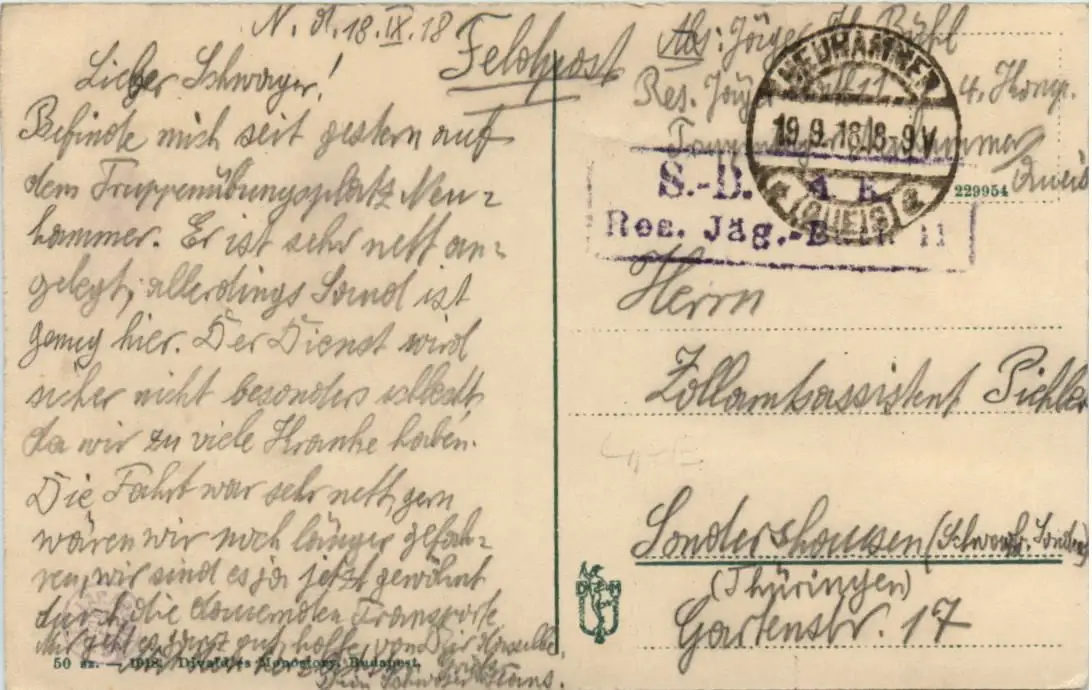 N. d. 18.IX.18
Lieber Schwager!
Befinde mich seit gestern auf
dem Truppenübungsplatz Neu-
hammer. Er ist sehr nett an-
gelegt, allerdings Sand ist
genug hier. Der Dienst wird
sicher nicht besonders schlecht,
da wir zu viele Kranke haben.
Die Fahrt war sehr nett, gern
wären wir noch länger gefah-
ren, wir sind es ja jetzt gewöhnt
durch die dauernden Transporte
Mir geht es ganz gut, hoffe von Dir dasselbe
Dein Schwager Hans.
50 sz. — 1918. Divald és Monostory, Budapest.
Feldpost
Abs: Jäger H. Bühl
Res. Jäger Batl 11 4. Komp.
Truppenübungsplatz Neuhammer
Queis
NEUHAMMER
19.9.18.8-9V
(QUEIS)
S.-B.
Res. Jäg.-Batl. 11
229954
Herrn
Zollamtsassistent Pichler
Sondershausen (Schwarzb. Sonders
(Thüringen)
Gartenstr. 17
D M